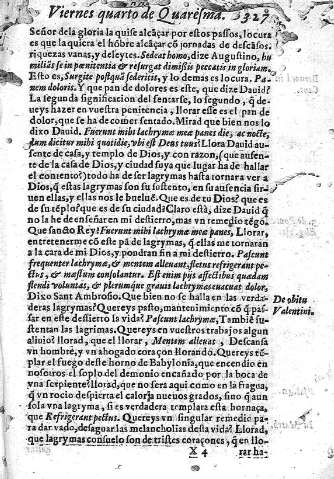 Viernes quarto de Quaresma. 327
Señor de la gloria la quiſe alcãçar por eſtos paſſos, locura
es que la quiera el hõbre alcãçar cõ jornadas de deſcãſos,
riquezas vanas, y deleytes. Sedeat homo, dize Auguſtino, hu
milias ſe in pœnitentia & reſurgat dimiſſis peccatis in gloriam.
Eſto es, Surgite poſtquã ſederitis, y lo demas es locura. Pa-
nem doloris. Y que pan de dolores es eſte, que dize Dauid?
La ſegunda ſignificacion del ſentarſe, lo ſegundo, q̃ de-
ueys hazer en vueſtra penitencia, llorar eſſe es el pan de
dolor, que ſe ha de comer ſentado. Mirad que bien nos lo
dixo Dauid. Fuerunt mihi lachrymæ meæ panes die, ac nocte,
dum dicitur mihi quotidie, vbi eſt Deus tuus? Llora Dauid au-
ſente de caſa, y templo de Dios, y con razon, q̃ que auſen-
te de la caſa de Dios, y ciudad ſuya que lugar ha de hallar
el contento? todo ha de ſer lagrymas haſta tornar a ver a
Dios, q̃ eſtas lagrymas ſon ſu ſuſtento, en ſu auſencia ſir-
uen ellas, y ellas nos le buelue. Que es de tu Dios? que es
de ſu tẽplo? que es de ſu ciudad? Claro eſtà, dize Dauid q̃
no la he de enſeñar en mi deſtierro, mas vn remedio tẽgo.
Que ſancto Rey? Fuerunt mihi lachrymæ meæ panes, Llorar,
entretenerme cõ eſte pã de lagrymas, q̃ ellas me tornaràn
a la cara de mi Dios, y pondran fin a mi deſtierro. Paſcunt
frequenter lachrymæ, & mentem alleuant, fletus refrigerant pe-
ctus, & mæſtum conſolantur. Eſt enim pijs affectibus quædam
flendi voluntas, & plerumque grauis lachrymis euacuat dolor,
Dixo Sant Ambroſio. Que bien no ſe halla en las verda-
deras lagrymas? Quereys peſo, mantenimiento cõ q̃ paſ-
ſar en eſte deſtierro la vida? Paſcunt lachrymæ, Tambiẽ ſu-
ſtentan las lagrimas. Quereys en vueſtros trabajos algun
aliuio? llorad, que el llorar, Mentem alleuat, Deſcanſa
vn hombre, y vn ahogado coraçon llorando. Quereys tẽ-
plar el fuego deſte horno de Babylonia, que encendio en
noſotros el ſoplo del demonio encañado por la boca de
vna ſerpiente? llorad, que no ſerà aqui como en la fragua,
q̃ vn rocio deſpierta el calor, ja nueuos grados, ſino q̃ aun
ſola vna lagryma, ſi es verdadera templara eſta hornaça,
que Refrigerant pectus. Quereys vn ſingular remedio pa-
ra dar vado, deſaguar las melancholias deſta vida? Llorad,
que lagrymas conſuelo ſon de triſtes coraçones, q̃ en llo-
X 4 rar ha-
De obitu
Valentini.